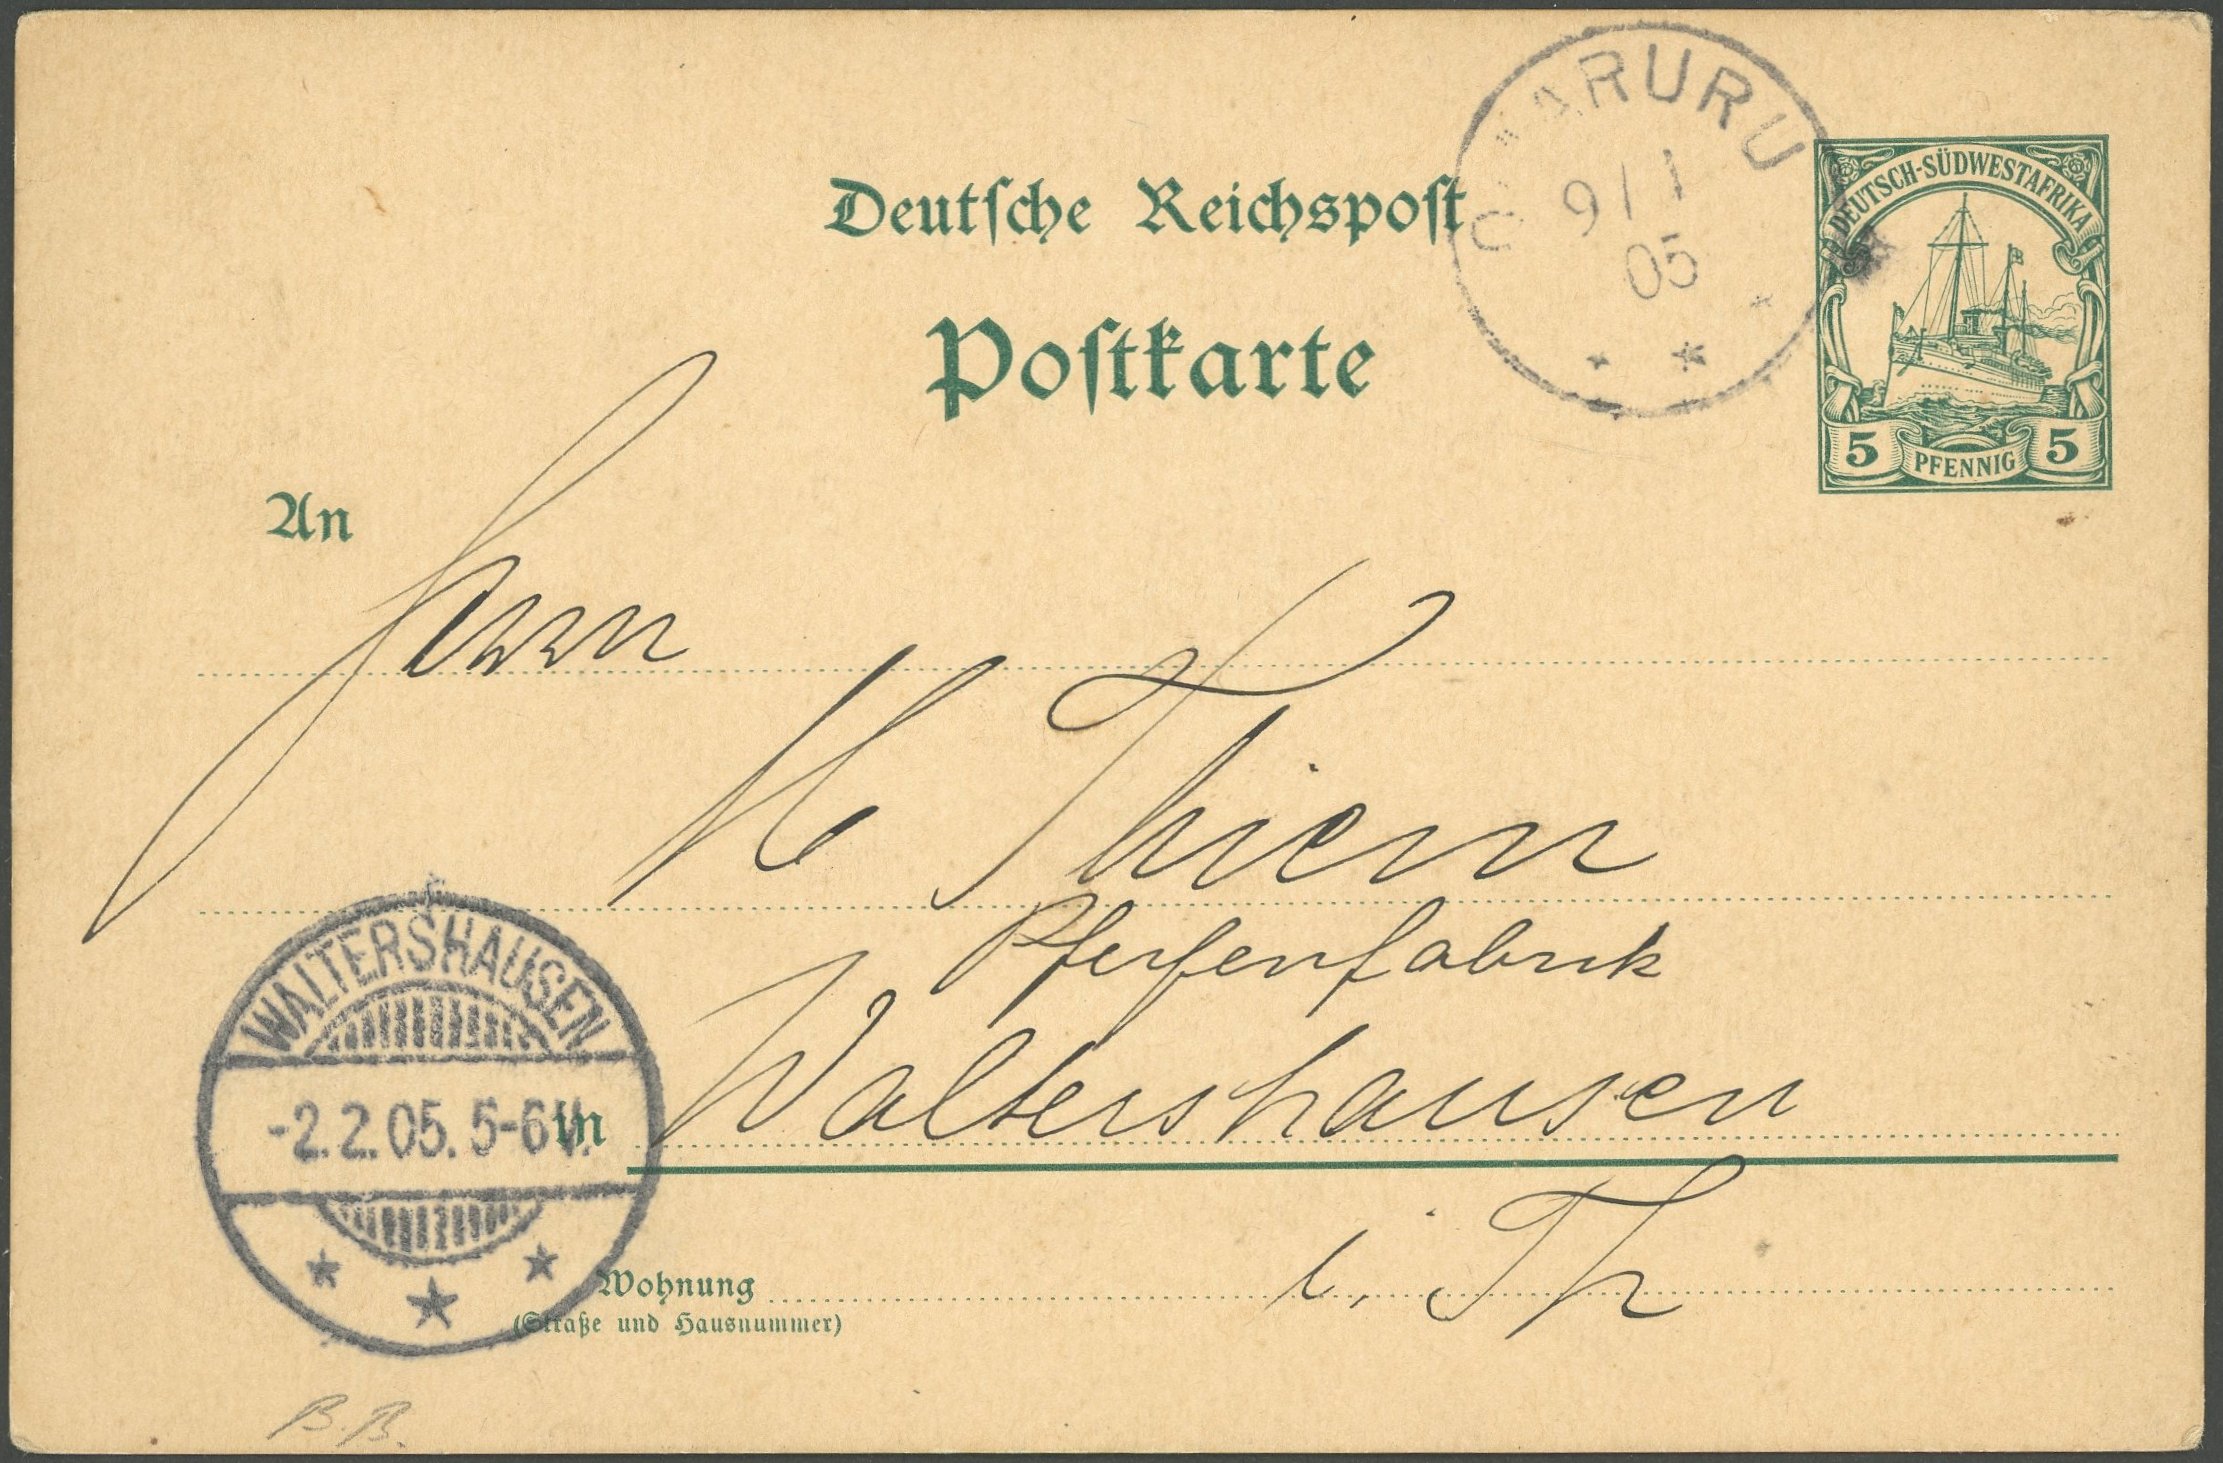 Deutsche Reichspost
Postkarte
OMARURU
9/1
05
DEUTSCH-SÜDWESTAFRIKA
5 PFENNIG 5
An
Herrn
M Thiem
Pfeifenfabrik
in Waltershausen
i. Th
WALTERSHAUSEN
-2.2.05. 5-6 V.
Wohnung
(Straße und Hausnummer)
B.B.